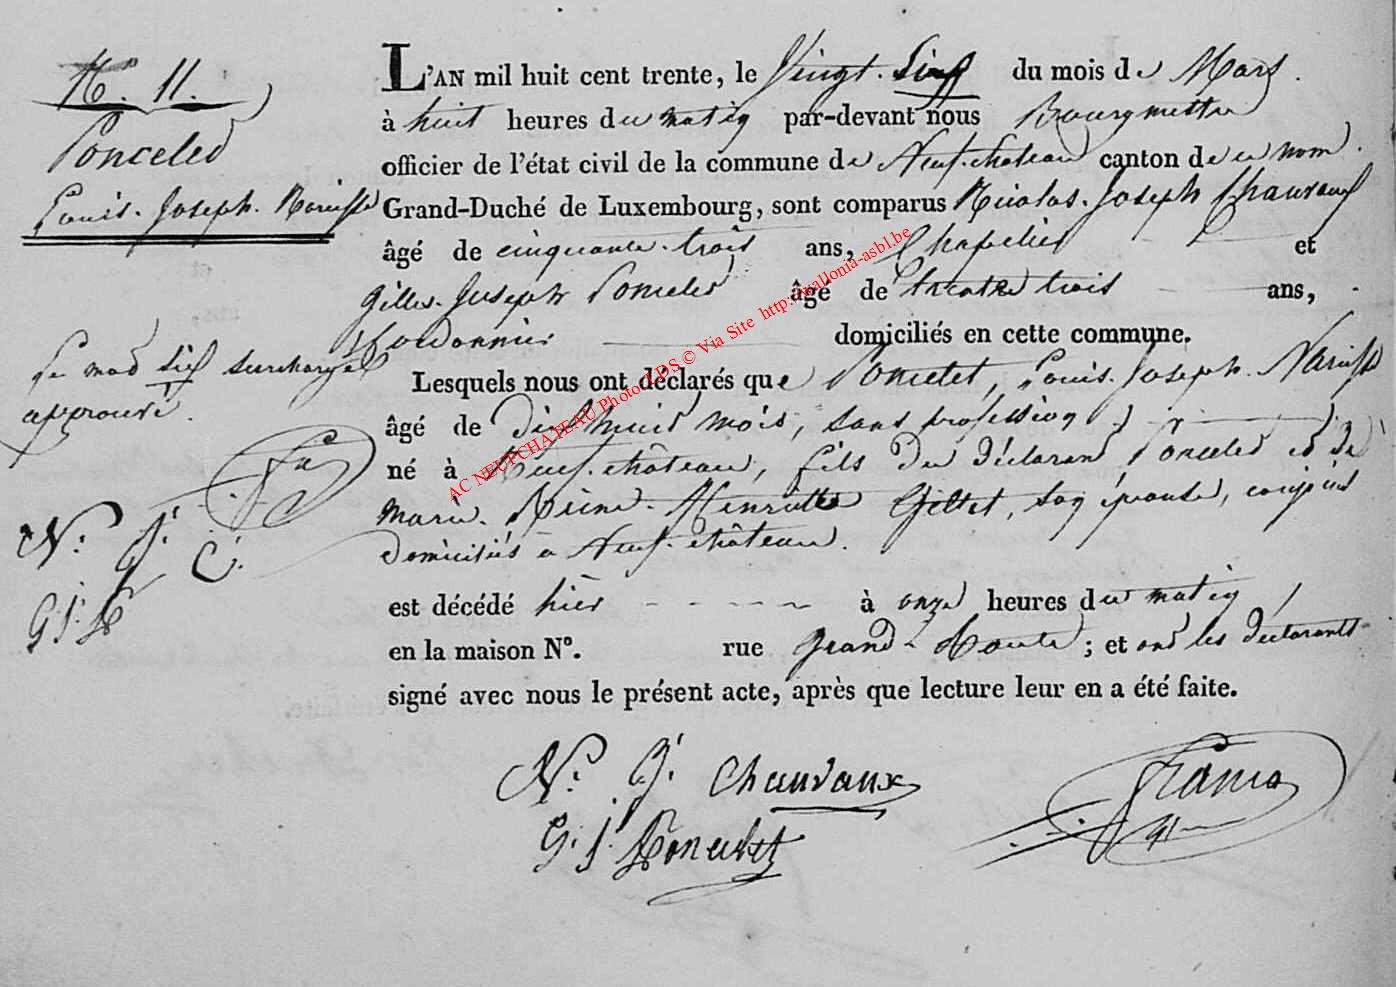 N°. 11.
Poncelet
Louis. Joseph. Narcisse
L'AN mil huit cent trente, le Vingt. Six du mois de Mars.
à huit heures du matin par-devant nous Bourgmettre
officier de l'état civil de la commune de Neufchateau canton de ce nom.
Grand-Duché de Luxembourg, sont comparus Nicolas. Joseph Chauvaux
âgé de cinquante. trois ans, Chapelier et
Gilles. Joseph Poncelet âgé de trente trois ans,
Cordonnier domiciliés en cette commune.
Lesquels nous ont déclarés que Poncelet, Louis. Joseph. Narcisse
âgé de dix huit mois, sans profession
né à Neuf. château, fils du déclarant Poncelet et de
Marie. Reine. Henriette son épouse, conjoints
domiciliés à Neuf. château.
est décédé hier à onze heures du matin
en la maison N°. rue Grand Route ; et ont les déclarants
signé avec nous le présent acte, après que lecture leur en a été faite.
Le mot six surchargé
approuvé.
N. J. C.
G. J. P.
N. J. Chauvaux
G. J. Poncelet
AC NEUFCHATEAU Photo LDS © Via Site http://wallonia-asbl.be